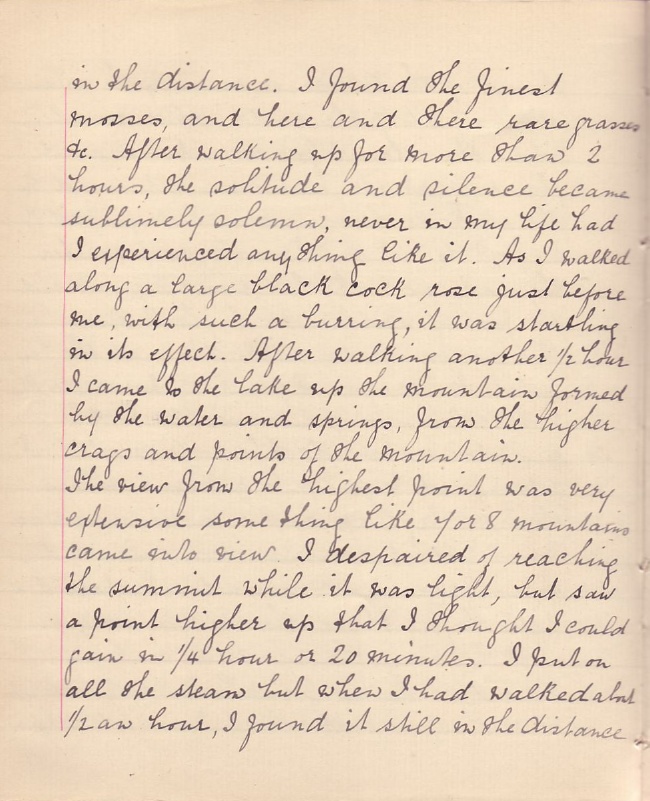 in the distance. I found the finest
mosses, and here and there rare grasses
&c. After walking up for more than 2
hours, the solitude and silence became
sublimely solemn, never in my life had
I experienced any thing like it. As I walked
along a large black cock rose just before
me, with such a burring, it was startling
in its effect. After walking another 1/2 hour
I came to the lake up the mountain formed
by the water and springs, from the higher
crags and points of the mountain.
The view from the highest point was very
extensive some thing like 7 or 8 mountains
came into view. I despaired of reaching
the summit while it was light, but saw
a point higher up that I thought I could
gain in 1/4 hour or 20 minutes. I put on
all the steam but when I had walked about
1/2 an hour, I found it still in the distance